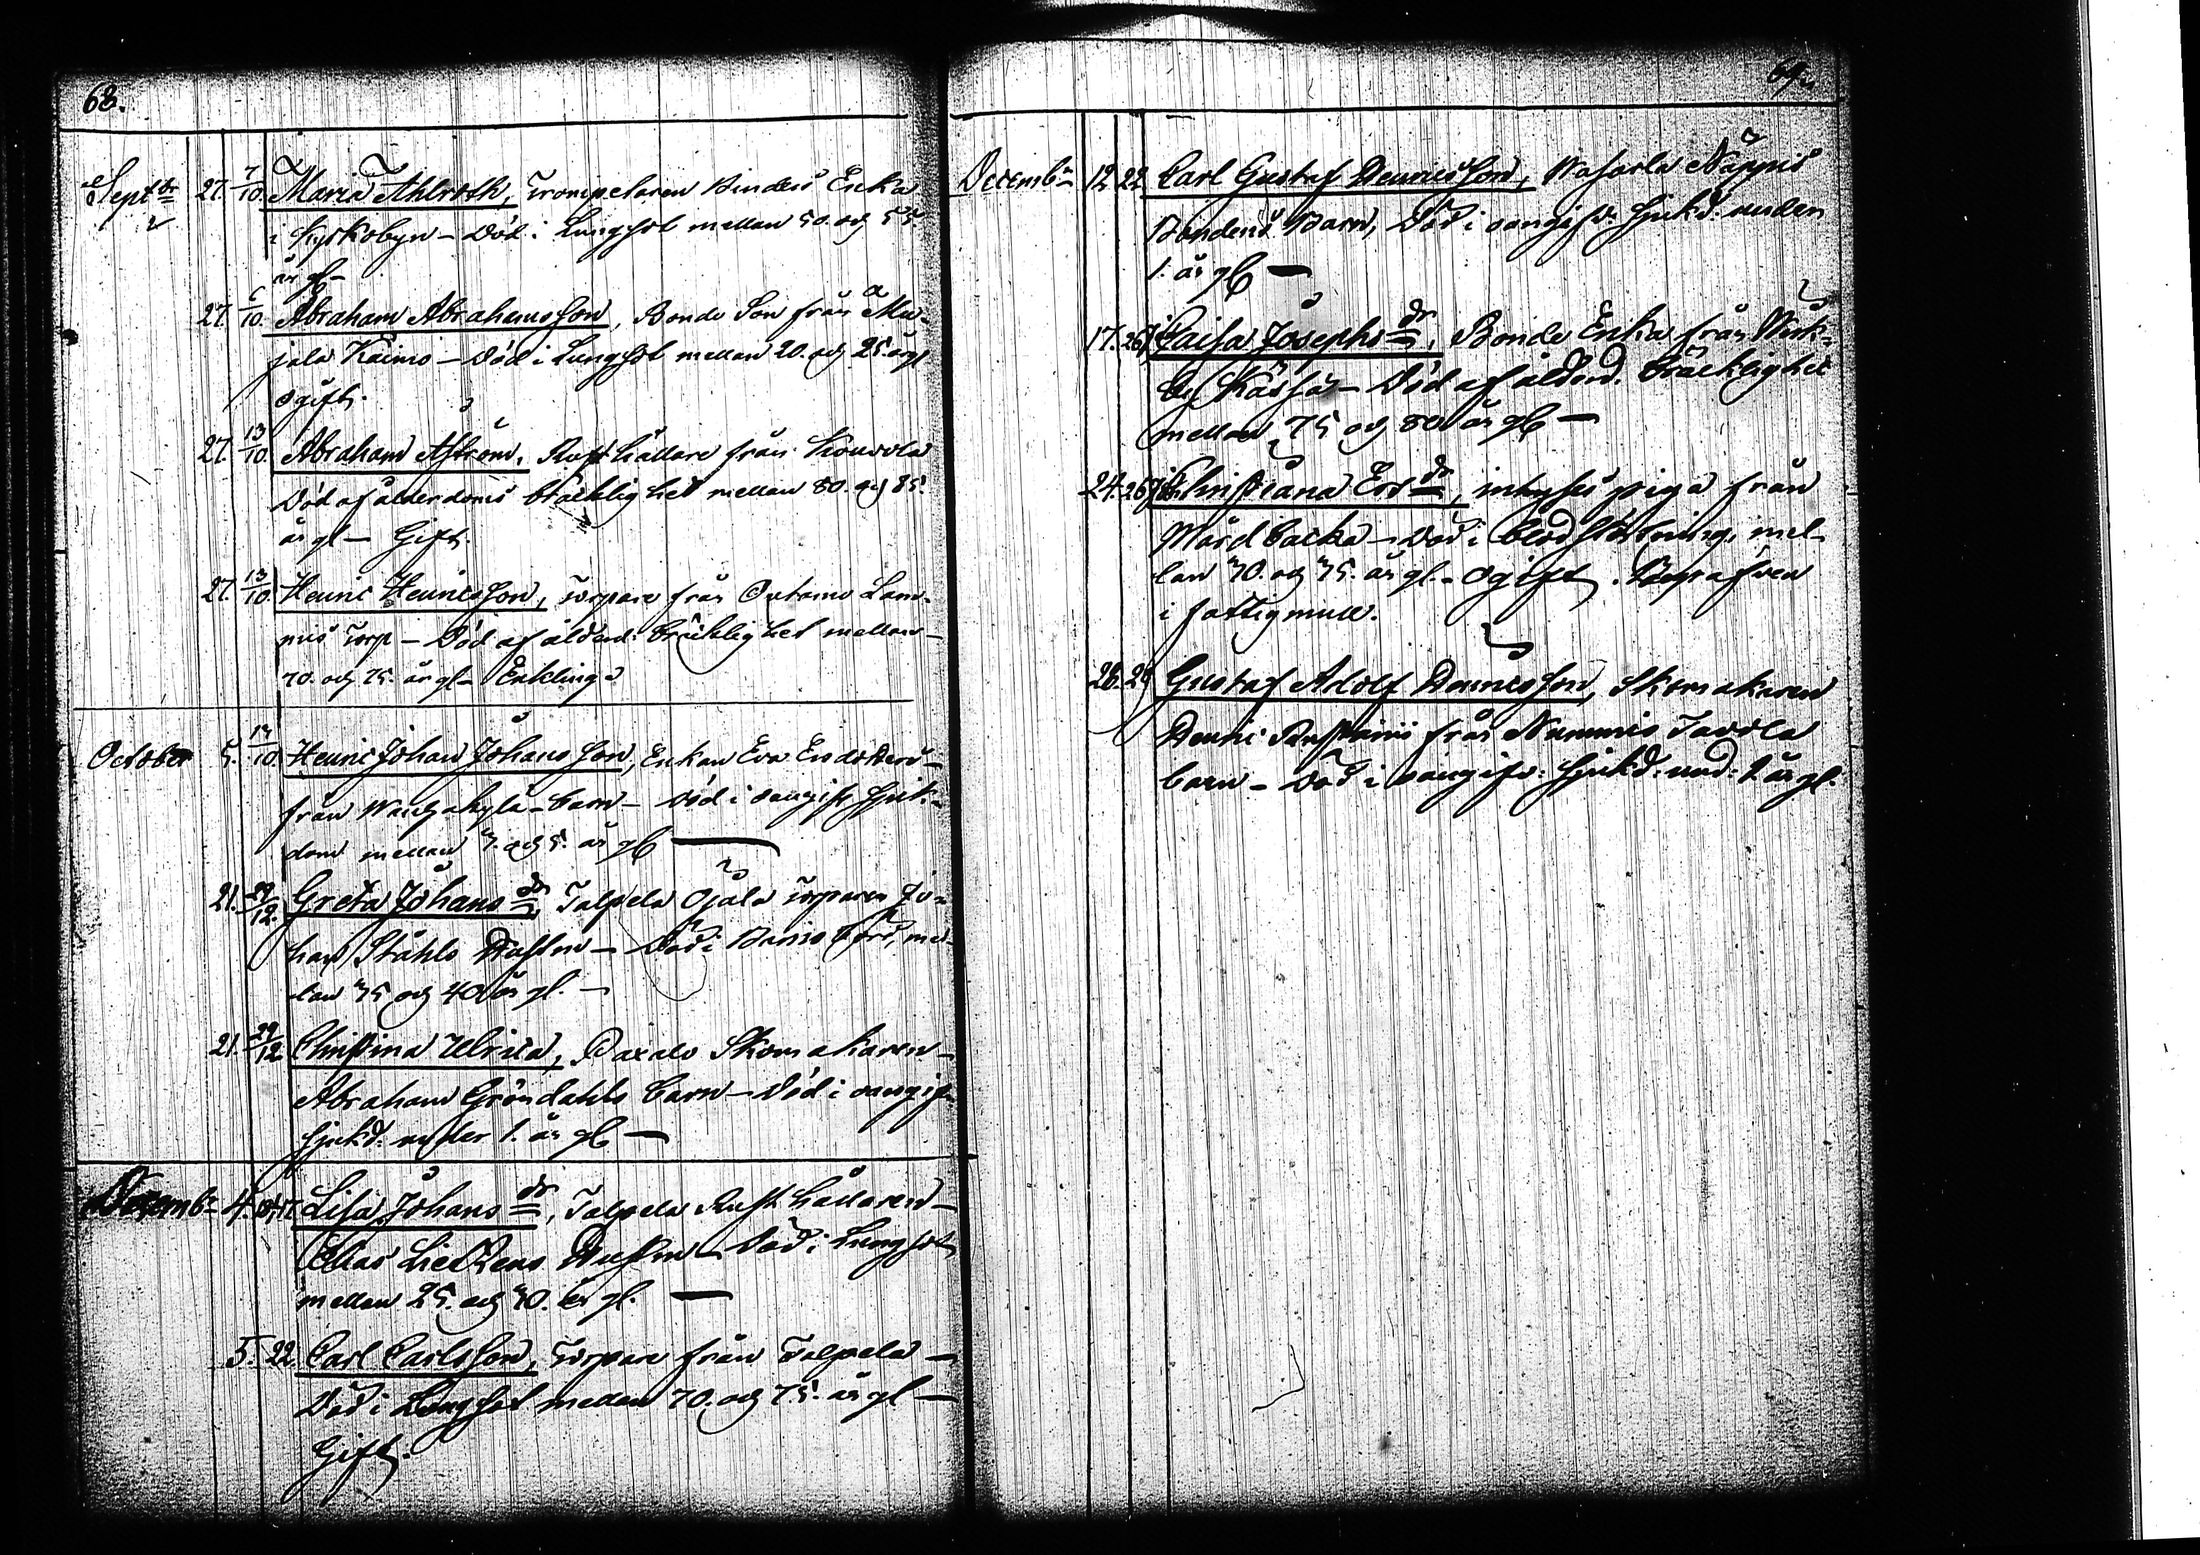 68.
Septbr 27. 7/10. Maria Ahlroth, Trompetaren Binders Enka
i Kyrkobyn – Död i Lungsot mellan 50. och 55.
år gl –
27. 6/10. Abraham Abrahamsson, Bonde Son från
jala Kaimo – Död i Lungsot mellan 20. och 25. år gl
ogift.
27. 13/10. Abraham Åström, Rusthållare från
Död af ålderdoms bräcklighet mellan 80. och 85.
år gl – Gift.
27. 13/10. Henric Henricsson, Torpare från
Torp – Död af ålderd: bräcklighet mellan
70. och 75. år gl – Enkling
October 5. 14/10. Henric Johan Johansson, Enkan Eva
från barn – Död i oangifv. sjuk-
dom mellan och 5. år gl –
21. 29/12. Greta Johans dr, Talpela Ojala Torparen Jo-
han Ståhls Hustru – Död i Barns börd, mel-
lan 35 och 40 år gl. –
21. 29/12. Christina Ulrica, Skomakaren
Abraham Gröndahls barn – Död i oangifv.
sjukd: under 1. år gl –
Decembr 4. Lisa Johans dr, Talpela Rusthållaren
Elias Hustru – Död i Lungsot
mellan 25. och 30. år gl. –
5. 22. Carl Carlsson, Torpare från Talpela –
Död i Lungsot mellan 70. och 75. år gl –
Gift.
69.
Decembr 12. 22. Carl Gustaf Dennisson,
Bondens Barn, Död i oangifv: sjukd: under
1. år gl –
17. 26. Caisa Josephs dr, Bonde Enka från
– Död af ålderd. bräcklighet
mellan 75 och 80 år gl –
24. 26. Christiana Ers dr, inhyses piga från
backa – Död i blodstörtning, mel-
lan 70. och 75. år gl. – Ogift. Begrafven
i fattigmull.
26. 29. Gustaf Adolf Dennisson, Skomakaren
från Nummis
barn – Död i oangifv: sjukd: und: 1 år gl.